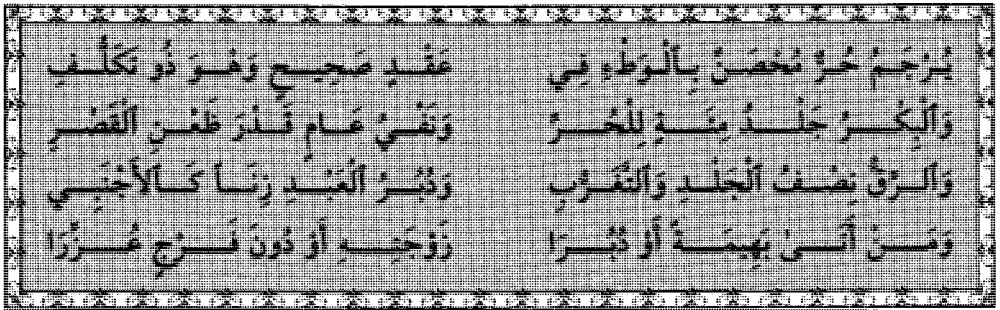 يُرْجَمُ حُرٌّ مُحْصَنٌ بِٱلْوَطْءِ فِي عَقْدٍ صَحِيحٍ وَهُوَ ذُو تَكَلُّفِ
وَٱلْبِكْرُ جَلْدُ مِئَةٍ لِلْحُرِّ وَنَفْيُ عَامٍ قَدْرَ ظَعْنِ ٱلْقَصْرِ
وَٱلرِّقُّ نِصْفُ ٱلْجَلْدِ وَٱلتَّغَرُّبِ وَدُبْرُ ٱلْعَبْدِ زِنَاً كَٱلأَجْنَبِي
وَمَنْ أَتَىٰ بَهِيمَةً أَوْ دُبْرَا زَوْجَتِهِ أَوْ دُونَ فَرْجٍ عُزِّرَا